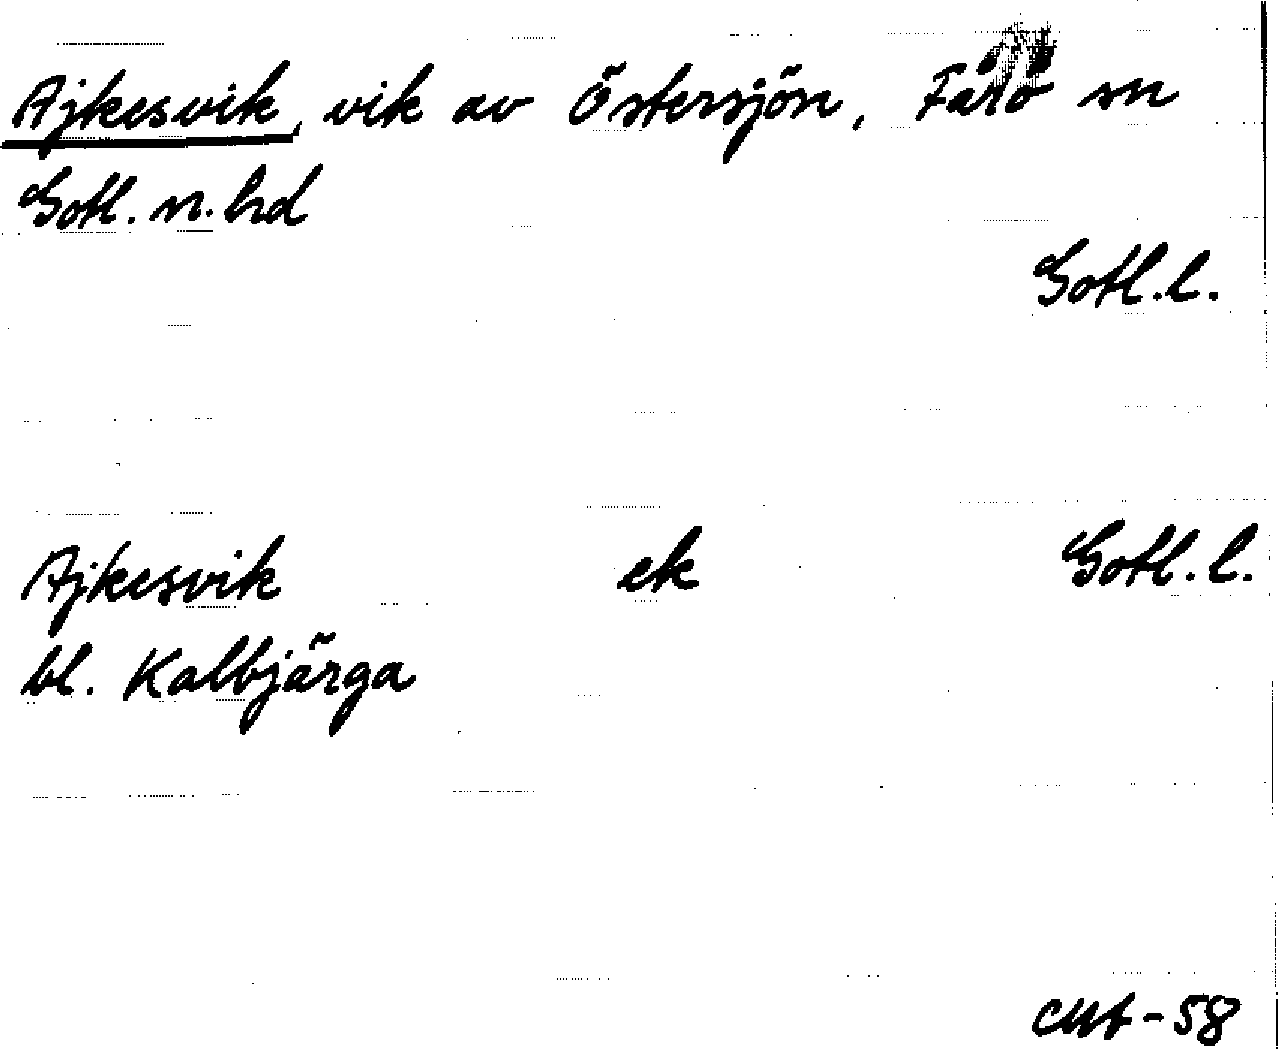 Ajkesvik, vik av Östersjön, Fårö sn
Gotl. n. hd
Gotl. l.
Ajkesvik ek Gotl. l.
bl. Kalbjärga